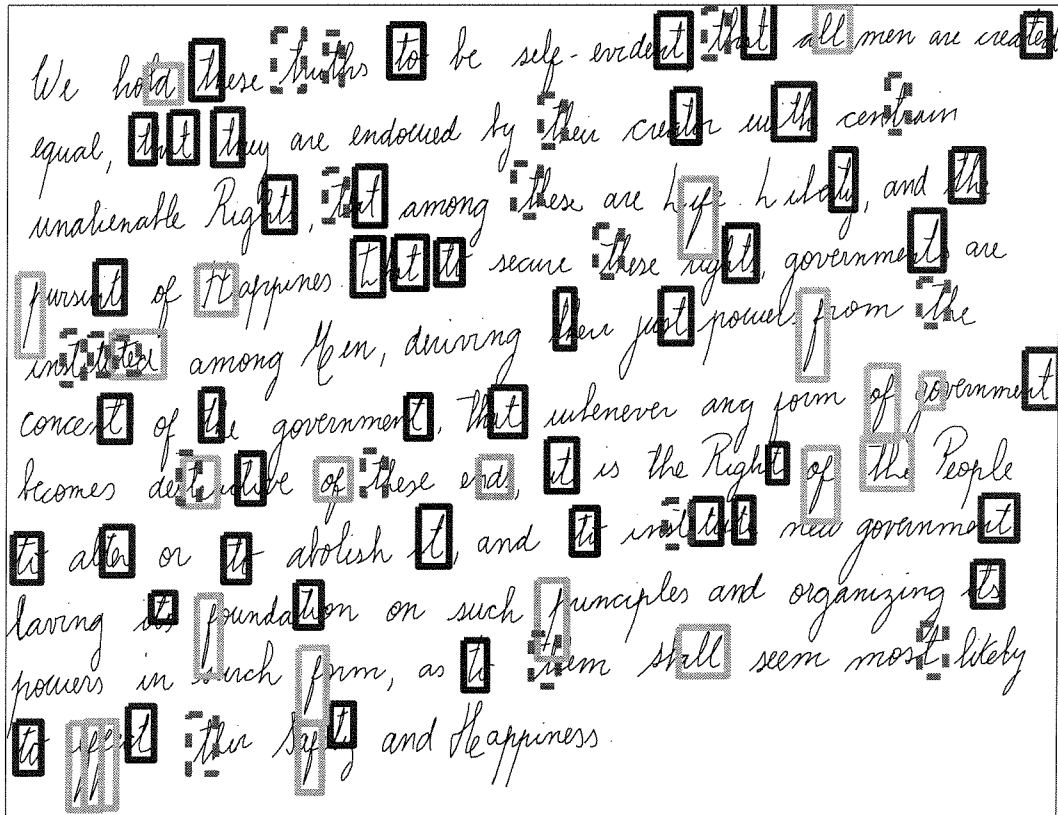 We hold these truths to be self-evident, that all men are created
equal, that they are endowed by their creator with centrain
unalienable Rights, that among these are Life. Libety, and the
pursuit of Happines. that to secure these rights, governments are
instituted among Men, deriving their just power from the
concent of the government, that whenever any form of government
becomes destructive of these ends, it is the Right of the People
to alter or to abolish it, and to institute new government
laving its foundation on such principles and organizing its
powers in such form, as to them shall seem most likely
to effect their Safety and Heappiness.